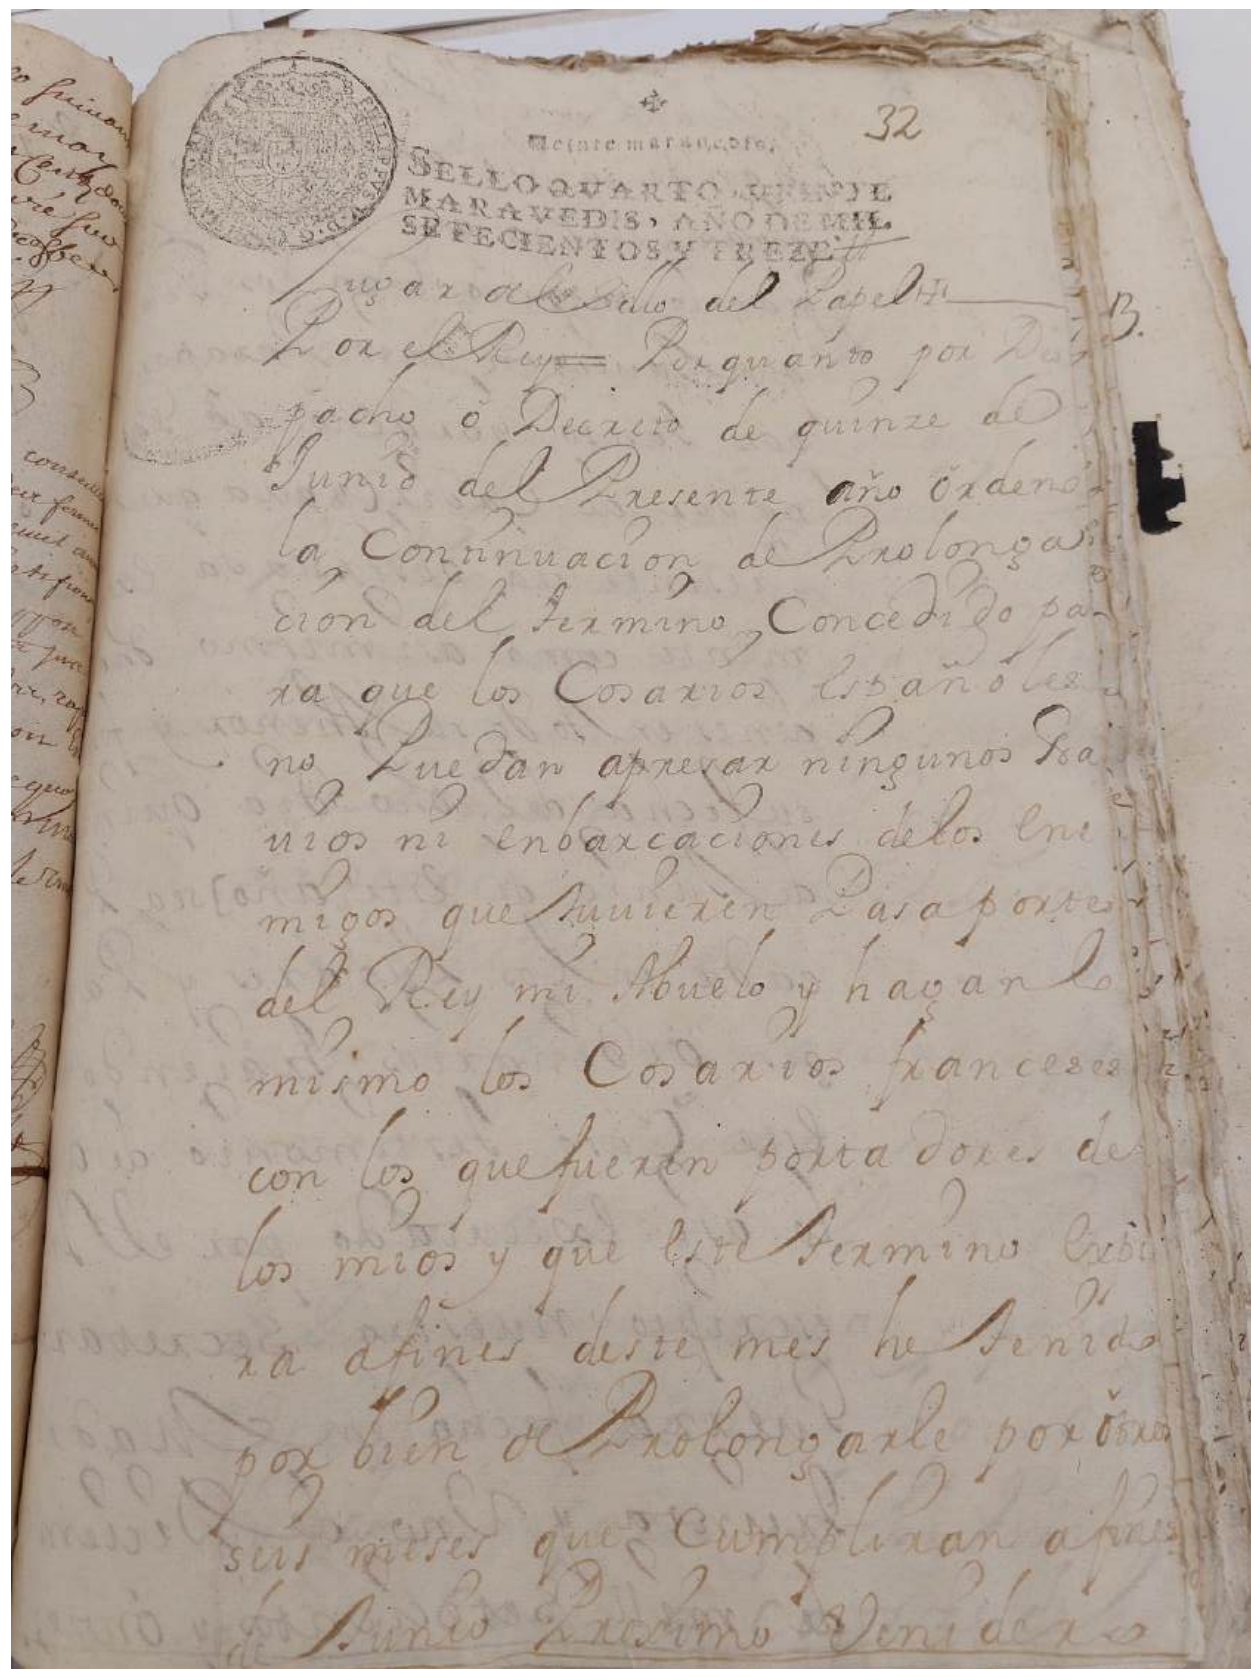 32
Veinte marauedis.
SELLO QVARTO, VEINTE
MARAVEDIS, AÑO DE MIL
SETECIENTOS Y TREZE
Lugar del Sello del Papel
B.
Por el Rey = Porquanto por Des
pacho ò Decreto de quinze de
Junio del Presente año òrdenè
la Continuacion de Prolonga
cion del termino Concedido pa-
ra que los Cosarios españoles
no Puedan apresar ningunos Na
uios ni enbarcaciones de los ene
migos que tuuieren Pasaportes
del Rey mi Abuelo y hagan lo
mismo los Cosarios franceses
con los que fueren portadores de
los mios y que este termino espi
ra a fines deste mes he tenido
por bien de Prolongarle por òtros
seis meses que Cumpliran a fines
de Junio Proximo Venidero